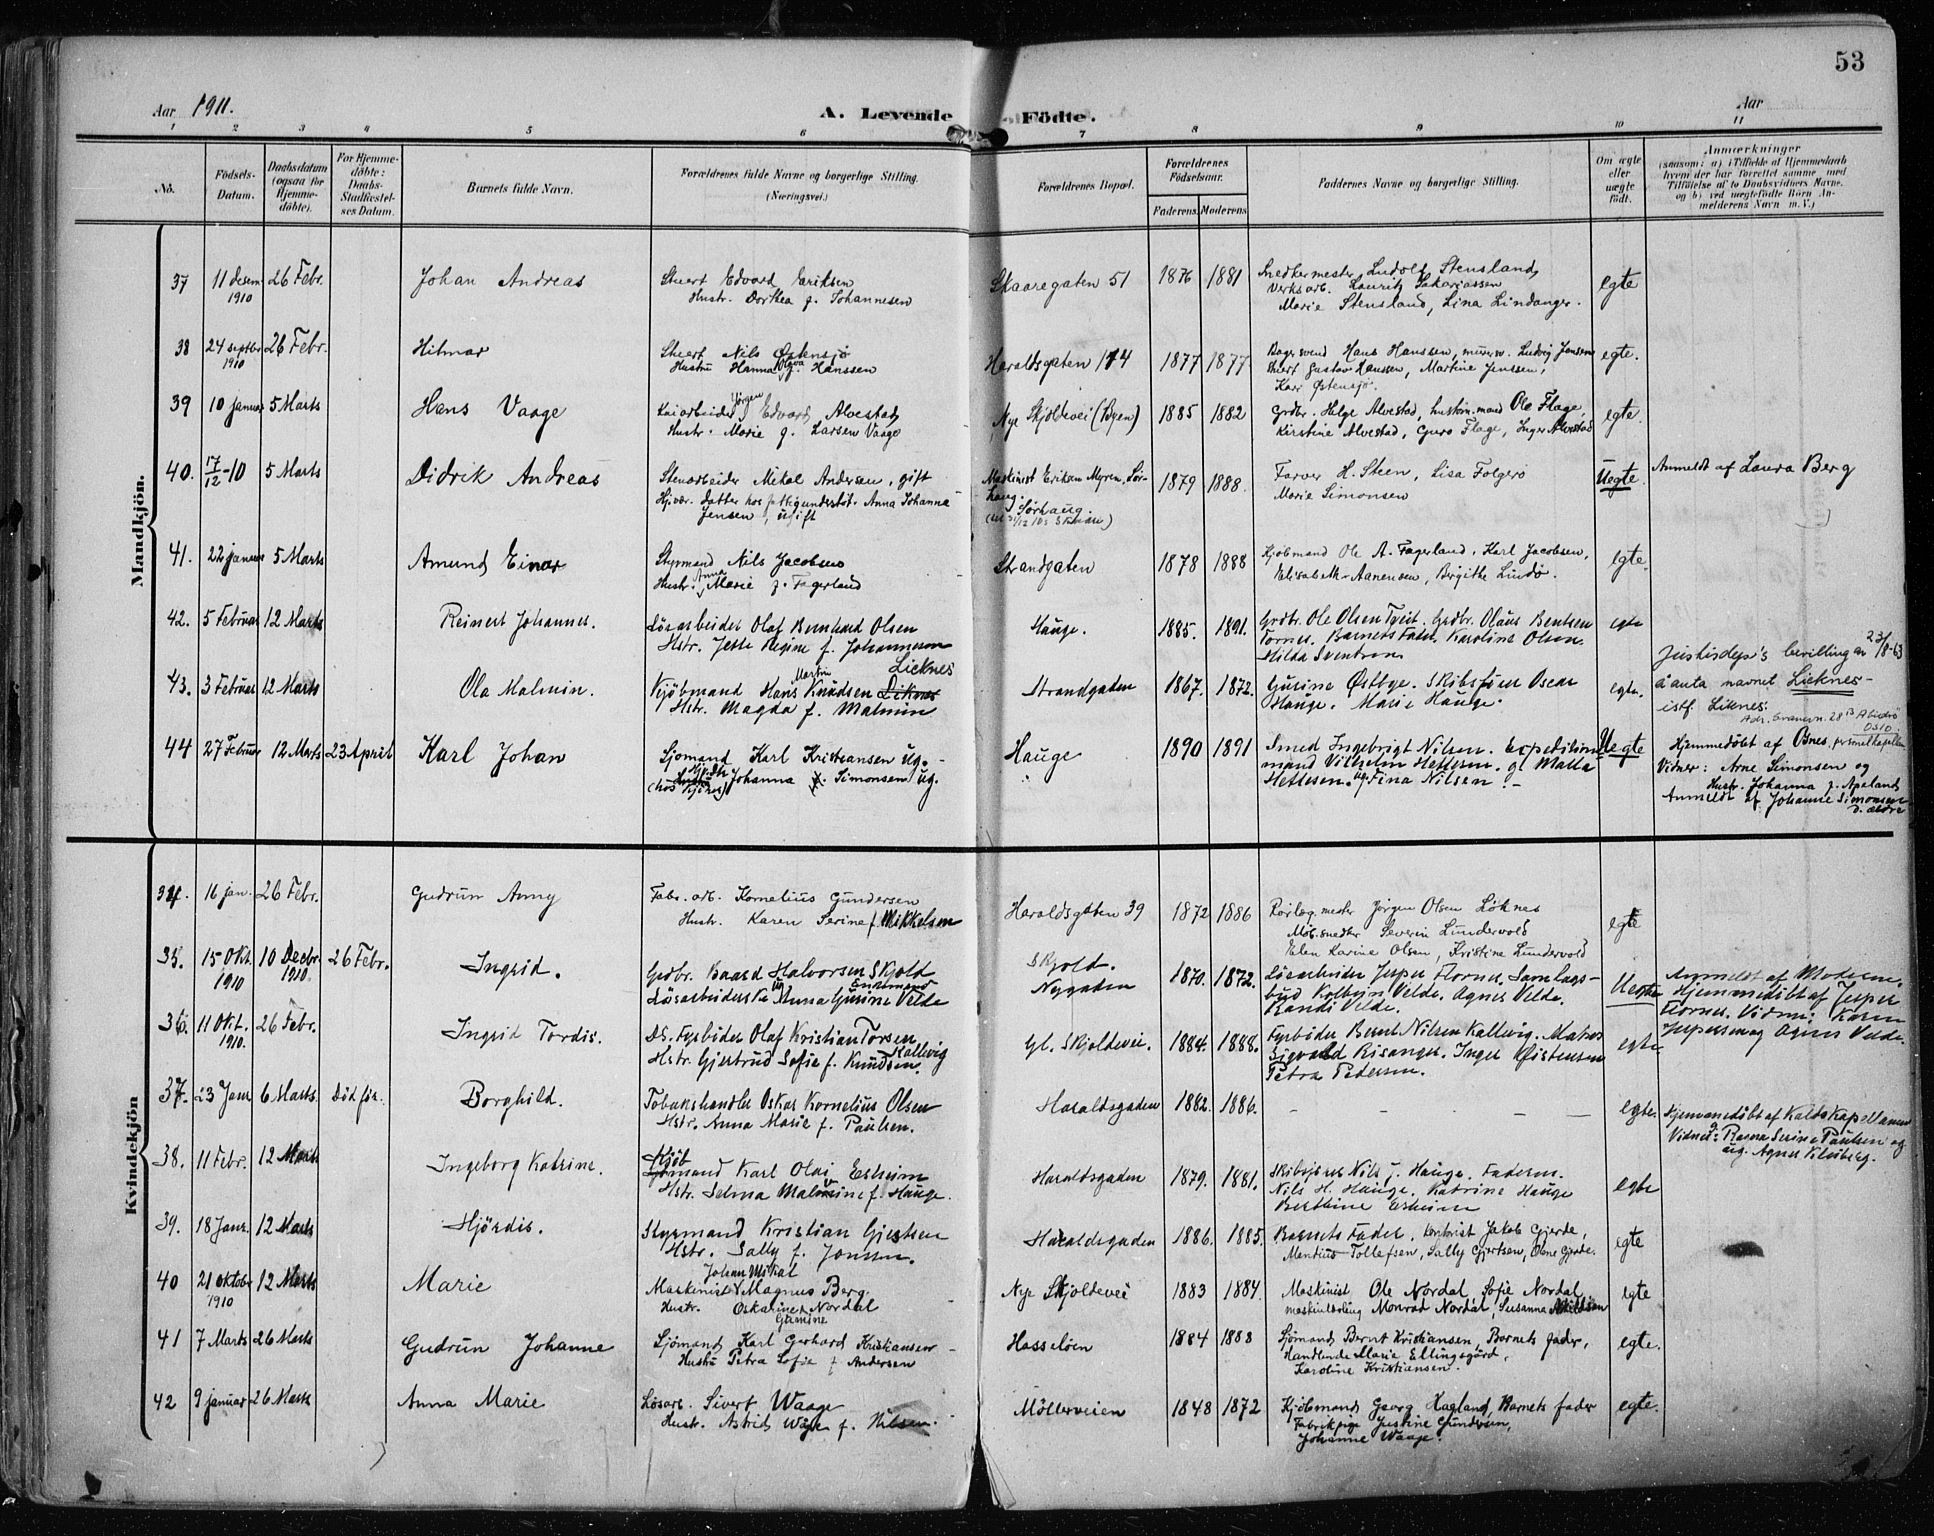 53
Aar 1911.
A. Levende Födte.
Aar
1 2 3 4 5 6 7 8 9 10 11
No.
Födsels-Datum.
Daabsdatum (ogsaa for Hjemme-döbte).
For Hjemme-döbte: Daabs-Stadfæstel-ses Datum.
Barnets fulde Navn.
Forældrenes fulde Navne og borgerlige Stilling. (Næringsvei.)
Forældrenes Bopæl.
Forældrenes Födselsaar.
Faderens. Moderens
Faddernes Navne og borgerlige Stilling.
Om ægte eller uægte födt.
Anmærkninger
(saasom: a) i Tilfælde af Hjemmedaab
hvem der har forrettet samme med
Tilföielse af to Daabsvidners Navne.
og b) ved uægtefödte Börn An-
melderens Navn m. V.)
Mandkjön.
37 11 desem 1910 26 Febr. Johan Andreas
Stuert Edvard Eriksen
Hustr. Dorthea f. Johannesen
Skaaregaten 51 1876 1881
Snedkermester Ludolf Stensland,
Verksarb. Lauritz Sakariassen
Marie Stensland, Lina Lindanger.
egte
38 24 septbr 1910 26 Febr. Hilmar
Stuert Nils Østensjø
Hustru Hanna Olava f. Hanssen
Haraldsgaten 174 1877 1877
Bagersvend Hans Hanssen, murerm. Ludvig Jensen
Stuert Gustav Hanssen, Martine Jenssen,
Østensjø.
egte.
39 10 januar 5 Marts Hans Vaage
Kaiarbeider Jørgen Edvard Alvestad
Hustr. Marie f. Larsen Vaage
Nye Skjoldevei (Byen) 1885 1882
Grdbr. Helge Alvestad, husm.mand Ole Flage,
Kirstine Alvestad, Guro Flage, Inger Alvestad
egte.
40. 17/12-10 5 Marts Didrik Andreas
Stenarbeider Mikal Andersen, gift
Hjvær. Datter hos fattigunderstøt. Anna Johanna
Jensen, ugift
Maskinist Eriksen Myren, Sør-
haug.
Sørhaug.
1879 1888.
Farver H. Steen, Lisa Folgerø
Marie Simonsen
Uegte.
Anmeldt af Laura Berg
41. 22 januar 5 Marts Amund Einar
Styrmand Nils Jacobsen
Hustr. Anna Marie f. Fagerland
Strandgaten 1878 1888
Kjøbmand Ole A. Fagerland, Karl Jacobsen,
Elisabeth Aanensen, Birgithe Lindø.
egte.
42. 5 Februar 12 Marts Reinert Johannes.
Løsarbeider Olaf Bernhard Olsen
Hstr. Jette Regine f. Johannesen
Hauge. 1885. 1891.
Grdbr. Ole Olsen Tveit. Grdbr. Olaus Bentsen
Tornes. Barnets Fader. Karoline Olsen.
Hilda Svendsen
egte
43. 3 Februar 12 Marts Ola Malmin.
Kjøbmand Hans Martin Knudsen Liknes Licknes
Hstr. Magda f. Malmin
Strandgaden 1867. 1872.
Gurine Østbye. Skibsfører Oscar
Hauge. Marie Hauge.
egte.
Justisdep's bevilling av 23/8-63
å anta navnet Licknes-
istf. Liknes.
Oslo.
44 27 Februar 12 Marts 23 April Karl Johan
Sjømand Karl Kristiansen ug.
Johanna Simonsen ug.
Hauge 1890 1891
Smed Ingebrigt Nilsen. Expeditions-
mand Vilhelm Hettesen. Malla
Hettesen. ug. Tina Nilsen.
Uegte
Hjemmedøbt af Osnes
Vidner: Arne Simonsen og
Hustr. Johanna f. Apeland
Anmeldt af Johanne Simonsen
d. ældre
Kvindekjön
34. 16 jan. 26 Febr. Gudrun Anny
Fabr. arb. Kornelius Gundersen
Hustr. Karen Serine f. Mikkelsen
Haraldsgaten 39 1872 1886
Rørlæg.mester Jørgen Olsen Løknes
Severin Lundervold
Elen Karine Olsen, Kristine Lundervold
egte
35. 15 Okt. 1910 10 Decbr. 1910. 26 Febr. Ingrid.
Grdbr. Baard Halvorsen Skjold Enkemand
Løsarbeiderske ug Anna Gurine Velde
Skjold.
Nygaden 1870. 1872.
Løsarbeider Jesper Flornes. Samlags-
bud Kolbejn Velde. Agnes Velde.
Randi Velde.
Uegte
Anmeldt af Moderen.
Hjemmedøbt af Jesper
Flornes. Vidner: Karen
Jespersen og Agnes Velde.
36. 11 Okt. 1910. 26 Febr. Ingrid Tordis.
DS. Fyrbøder Olaf Kristian Torsen
Hstr. Gjertrud Sofie f. Knudsen Kallevig
Gl. Skjoldevei. 1884. 1888.
Fyrbøder Bernt Nilsen Kallevig. Matros
Sigvald Risanger. Inger Østensen
Petra Pedersen.
egte
37. 23 Janr 6 Marts. Død før. Borghild.
Tobakshandler Oskar Kornelius Olsen
Hstr. Anna Marie f. Paulsen.
Haraldsgaden 1882. 1886. – – – –
egte.
Hjemmedøbt af Kaldskapellanen
Vidner: Ragna Serine Paulsen og
ug. Agnes Kleiberg.
38. 11 Febr. 12 Marts Ingeborg Katrine.
Kjøbmand Karl Olai Esheim
Hstr. Selma Malvine f. Hauge.
Haraldsgaden 1879. 1881.
Skibsfører Nils J. Hauge. Faderen.
Nils H. Hauge. Katrine Hauge
Berthine Esheim
egte
39. 18 Janr. 12 Marts Hjørdis.
Styrmand Kristian Gjertsen
Hstr. Sally f. Jonsen.
Haraldsgaden 1886. 1885.
Barnets Fader. Kontorist Jakob Gjerde,
Tollefsen, Sally Gjertsen, Olene Gjerde.
egte
40 21 oktober 1910 12 Marts Marie
Maskinist Johan Mikal Magnus Berg.
Hustr. Oskarine Gurine Nordal
Nye Skjoldevei 1883 1884.
Maskinist Ole Nordal, Sofie Nordal,
maskinlærling Monrad Nordal, Susanna
egte
41 7 Marts 26 Marts Gudrun Johanne
Sjømand Karl Gerhard Kristiansen
Hustru Petra Sofie f. Andersen
Hasseløen 1884 1888
Sjømand Bernt Kristiansen, Barnets fader,
Handlende Marie Ellingsgård,
Karoline Kristiansen.
egte.
42 9 januar 26 Marts Anna Marie
Løsarb. Sivert Waage
Hustr. Astrid Wåge f. Nilsen.
Møllerveien 1848 1872
Kjøbmand Georg Hagland, Barnets fader
Fabrikpige Justine Gundersen,
Johanne Waage.
egte.